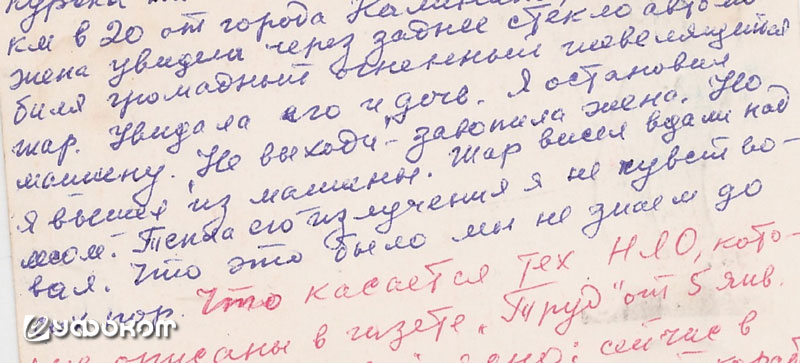 км в 20 от города Калинин,
жена увидела через заднее стекло автомо
биля громадный огненный шевелящийся
шар. Увидала его и дочь. Я остановил
машину. "Не выходи"- завопила жена. Но
я вышел из машины. Шар висел вдали над
лесом. Тепла его излучения я не чувство-
вал. Что это было мы не знаем до
пор. Что касается тех НЛО, кото-
описаны в газете "Труд" от 5 янв.
сейчас в
уфоком